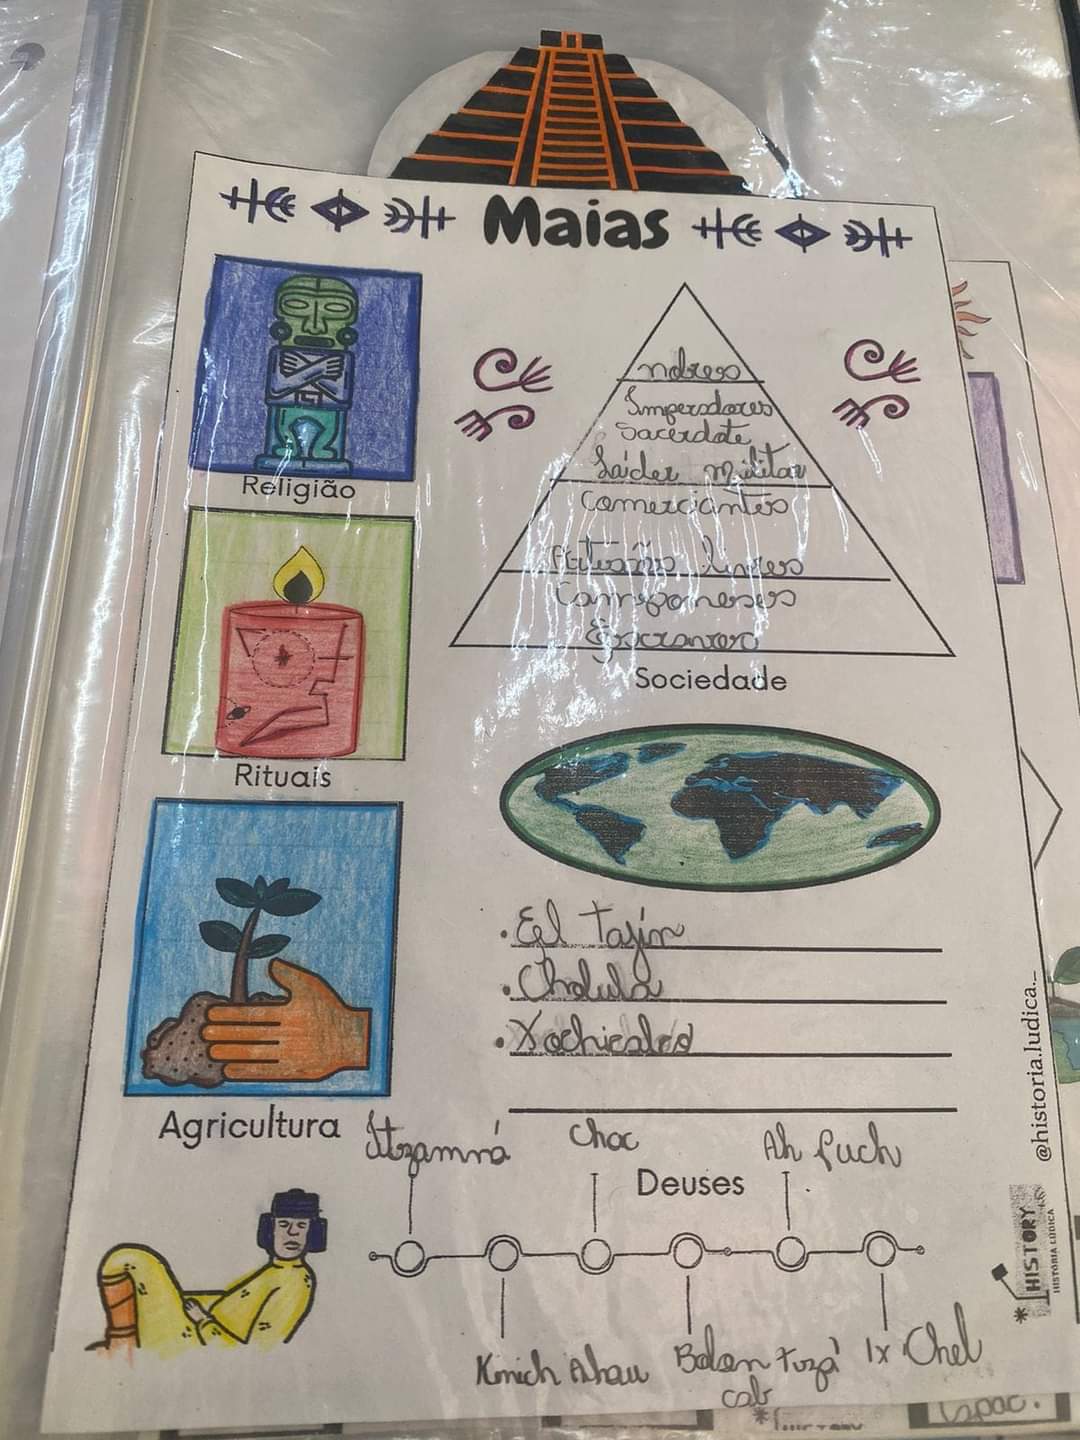 Maias
Religião
nobres
Imperadores
Sacerdote
Laíder militar
Comerciantes
Artesãos livres
Camponeses
Escravos
Sociedade
Rituais
. Eel Tajín
. Cholula
. Xochicalco
Agricultura
Itzamná
Choc
Ah Puch
Deuses
Kinich Ahau
Bolon Tuzá
cab
Ix Chel
@historia.ludica._
HISTORY
HISTÓRIA LÚDICA